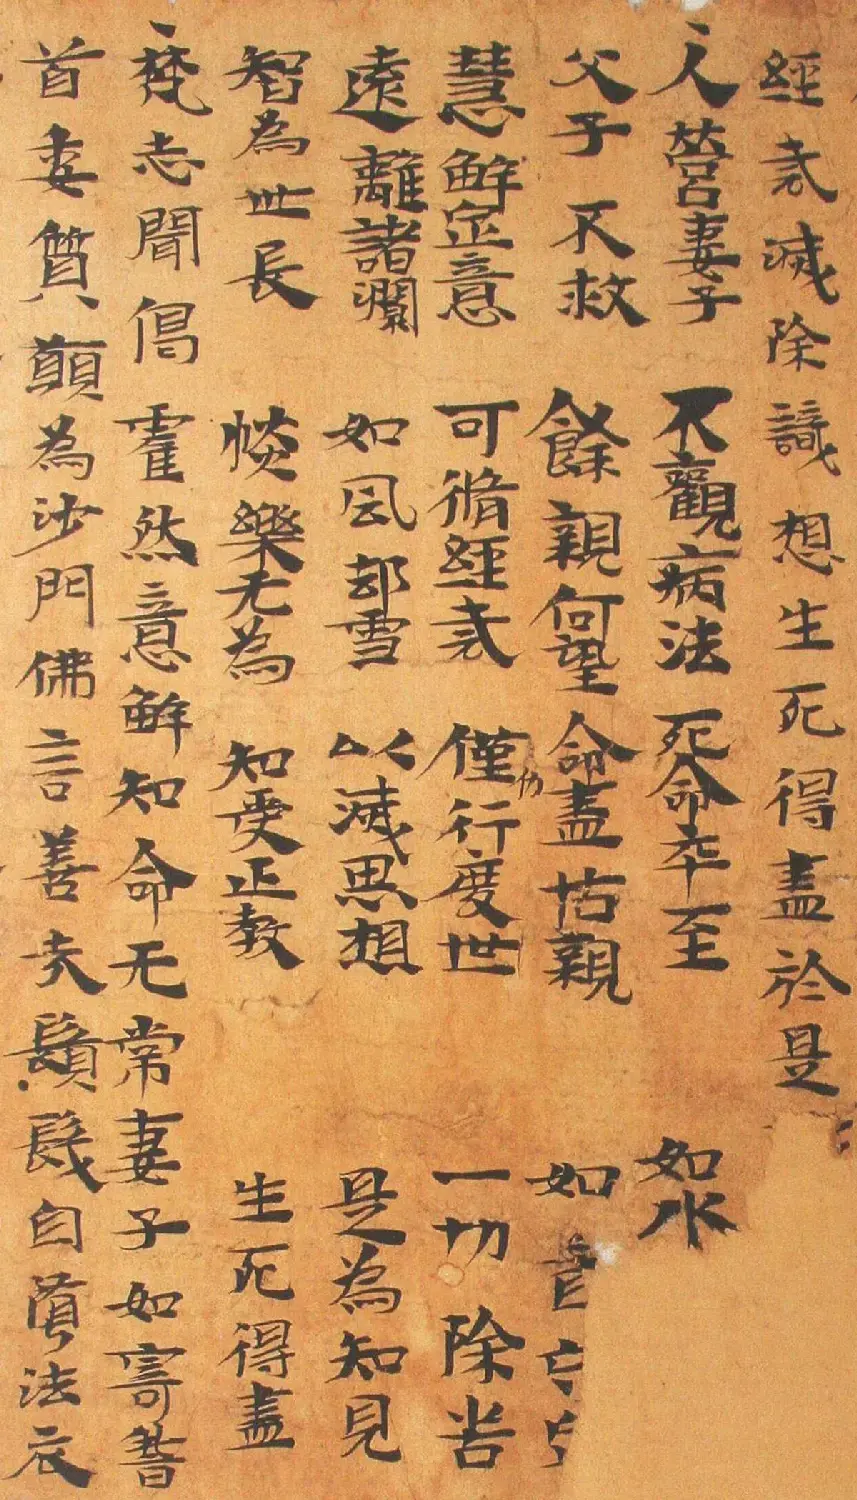 經戒滅除識想生死得盡於是
人營妻子 不觀病法 死命卒至 如水
父子不救 餘親何望 命盡怙親 如盲
慧解定意 可脩經戒 僅行度世 一切除苦
遠離諸瀾 如風却雪 以滅思想 是為知見
智為世長 惔樂无為 知受正教 生死得盡
梵志聞偈霍然意解知命无常妻子如寄
首委質願為沙門佛言善哉鬚髮自墮法衣